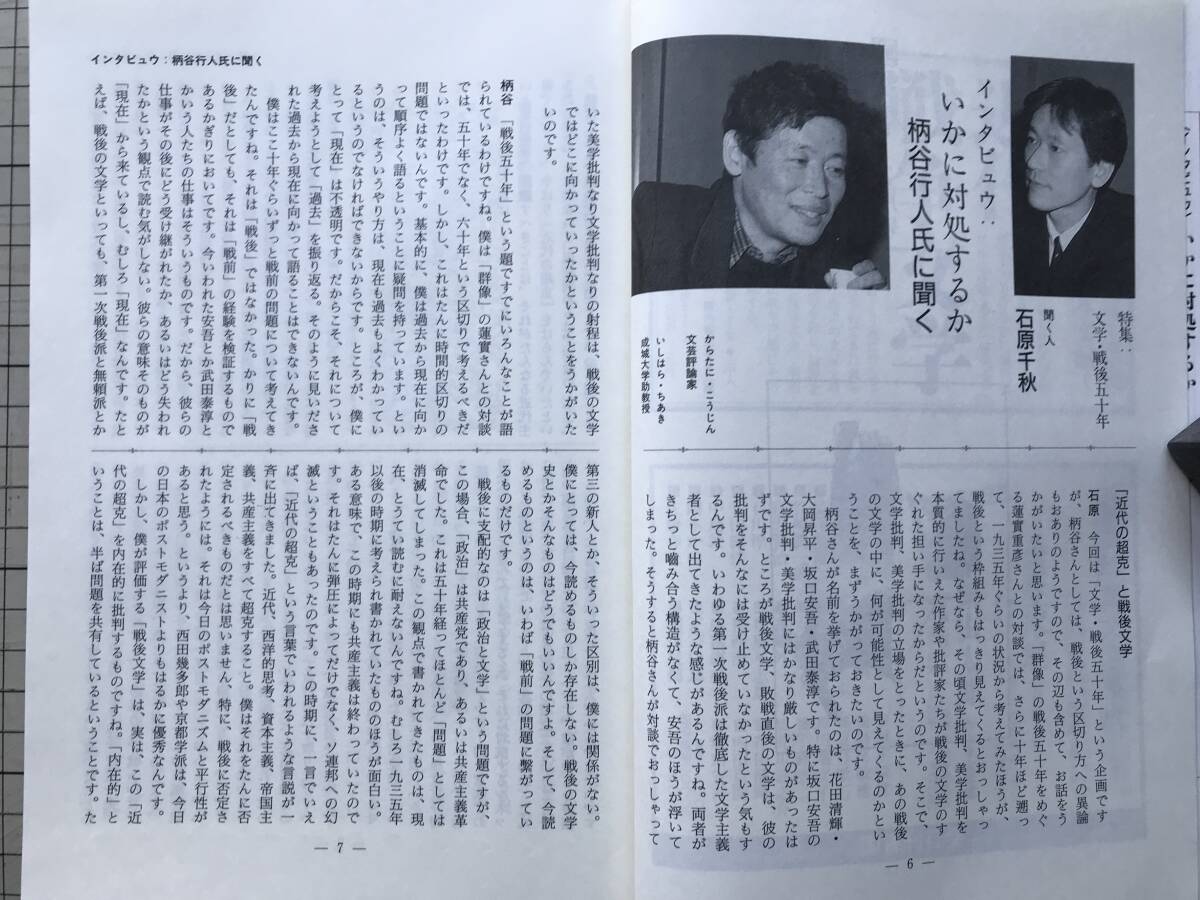 特集::
文学・戦後五十年
聞く人
石原千秋
インタビュウ::
いかに対処するか
柄谷行人氏に聞く
からたに・こうじん
文芸評論家
いしはら・ちあき
成城大学助教授
「近代の超克」と戦後文学
石原　今回は「文学・戦後五十年」という企画です
が、柄谷さんとしては、戦後という区切り方への異論
もおありのようですので、その辺も含めて、お話をう
かがいたいと思います。「群像」の戦後五十年をめぐ
る蓮實重彦さんとの対談では、さらに十年ほど遡っ
て、一九三五年ぐらいの状況から考えてみたほうが、
戦後という枠組みもはっきり見えてくるとおっしゃっ
てましたね。なぜなら、その頃文学批判、美学批判を
本質的に行いえた作家や批評家たちが戦後の文学のす
ぐれた担い手になったからだというのです。そこで、
文学批判、美学批判の立場をとったときに、あの戦後
の文学の中に、何が可能性として見えてくるのかとい
うことを、まずうかがっておきたいのです。
柄谷さんが名前を挙げておられたのは、花田清輝・
大岡昇平・坂口安吾・武田泰淳です。特に坂口安吾の
文学批判・美学批判にはかなり厳しいものがあったは
ずです。ところが戦後文学、敗戦直後の文学は、彼の
批判をそんなには受け止めていなかったという気もす
るんです。いわゆる第一次戦後派は徹底した文学主義
者として出てきたような感じがあるんですね。両者が
きちっと嚙み合う構造がなくて、安吾のほうが浮いて
しまった。そうすると柄谷さんが対談でおっしゃって
— 6 —
インタビュウ:柄谷行人氏に聞く
いた美学批判なり文学批判なりの射程は、戦後の文学
ではどこに向かっていったかということをうかがいた
いのです。
柄谷　「戦後五十年」という題ですでにいろんなことが語
られているわけですね。僕は「群像」の蓮實さんとの対談
では、五十年でなく、六十年という区切りで考えるべきだ
といったわけです。しかし、これはたんに時間的区切りの
問題ではないんです。基本的に、僕は過去から現在に向か
って順序よく語るということに疑問を持っています。とい
うのは、そういうやり方は、現在も過去もよくわかってい
るというのでなければできないからです。ところが、僕に
とって「現在」は不透明です。だからこそ、それについて
考えようとして「過去」を振り返る。そのように見いださ
れた過去から現在に向かって語ることはできないんです。
僕はここ十年ぐらいずっと戦前の問題について考えてき
たんですね。それは「戦後」ではなかった。かりに「戦
後」だとしても、それは「戦前」の経験を検証するもので
あるかぎりにおいてです。今いわれた安吾とか武田泰淳と
かいう人たちの仕事はそういうものです。だから、彼らの
仕事がその後にどう受け継がれたか、あるいはどう失われ
たかという観点で読む気がしない。彼らの意味そのものが
「現在」から来ているし、むしろ「現在」なんです。たと
えば、戦後の文学といっても、第一次戦後派と無頼派とか
第三の新人とか、そういった区別は、僕には関係がない。
僕にとっては、今読めるものしか存在しない。戦後の文学
史とかそんなものはどうでもいいんですよ。そして、今読
めるものというのは、いわば「戦前」の問題に繋がってい
るものだけです。
戦後に支配的なのは「政治と文学」という問題ですが、
この場合、「政治」は共産党であり、あるいは共産主義革
命でした。これは五十年経ってほとんど「問題」としては
消滅してしまった。この観点で書かれてきたものは、現
在、とうてい読むに耐えないんですね。むしろ一九三五年
以後の時期に考えられ書かれていたもののほうが面白い。
ある意味で、この時期にも共産主義は終わっていたので
す。それはたんに弾圧によってだけでなく、ソ連邦への幻
滅ということもあったのです。この時期に、一言でいえ
ば、「近代の超克」という言葉でいわれるような言説が一
斉に出てきました。近代、西洋的思考、資本主義、帝国主
義、共産主義をすべて超克すること。僕はそれをたんに否
定されるべきものだとは思いません、特に、戦後に否定さ
れたようには。それは今日のポストモダニズムと平行性が
あると思う。というより、西田幾多郎や京都学派は、今日
の日本のポストモダニストよりもはるかに優秀なんです。
しかし、僕が評価する「戦後文学」は、実は、この「近
代の超克」を内在的に批判するものですね。「内在的」と
いうことは、半ば問題を共有しているということです。た
— 7 —